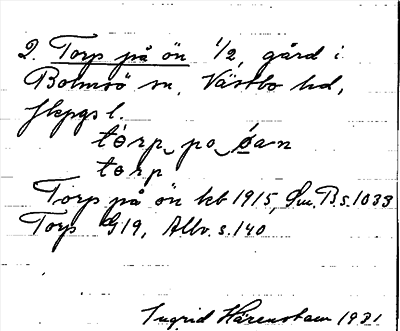 2. Torp på ön 1/2, gård i
Bolmsö sn, Västbo hd,
Jkpgs l.
tórp po ǿan
tórp
Torp på ön kb 1915, Sm. B s. 1033
Torp G19, Allv. s. 140
Ingrid Härenstam 1931